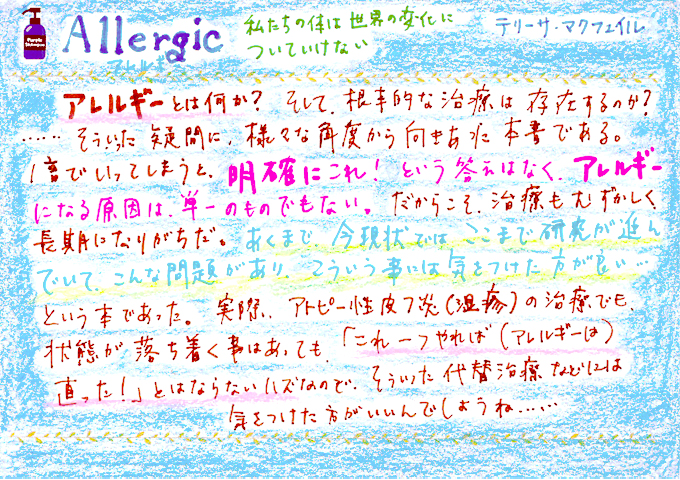 Purple Shampoo
Allergic
アレルギー
私たちの体は世界の変化に
ついていけない
テリーサ・マクフェイル
アレルギーとは何か？ そして、根本的な治療は存在するのか？
……そういった疑問に、様々な角度から向きあった本書である。
1言でいってしまうと、明確にこれ！という答えはなく、アレルギー
になる原因は、単一のものでもない。だからこそ、治療もむずかしく
長期になりがちだ。あくまで、今現状では ここまで研究が進ん
でいて、こんな問題があり、こういう事には気をつけた方が良い…
という本であった。実際、アトピー性皮フ炎（湿疹）の治療でも、
状態が落ち着く事はあっても、「これ一つやれば（アレルギーは）
直った！」とはならないハズなので、そういった代替治療などには
気をつけた方がいいんでしょうね……